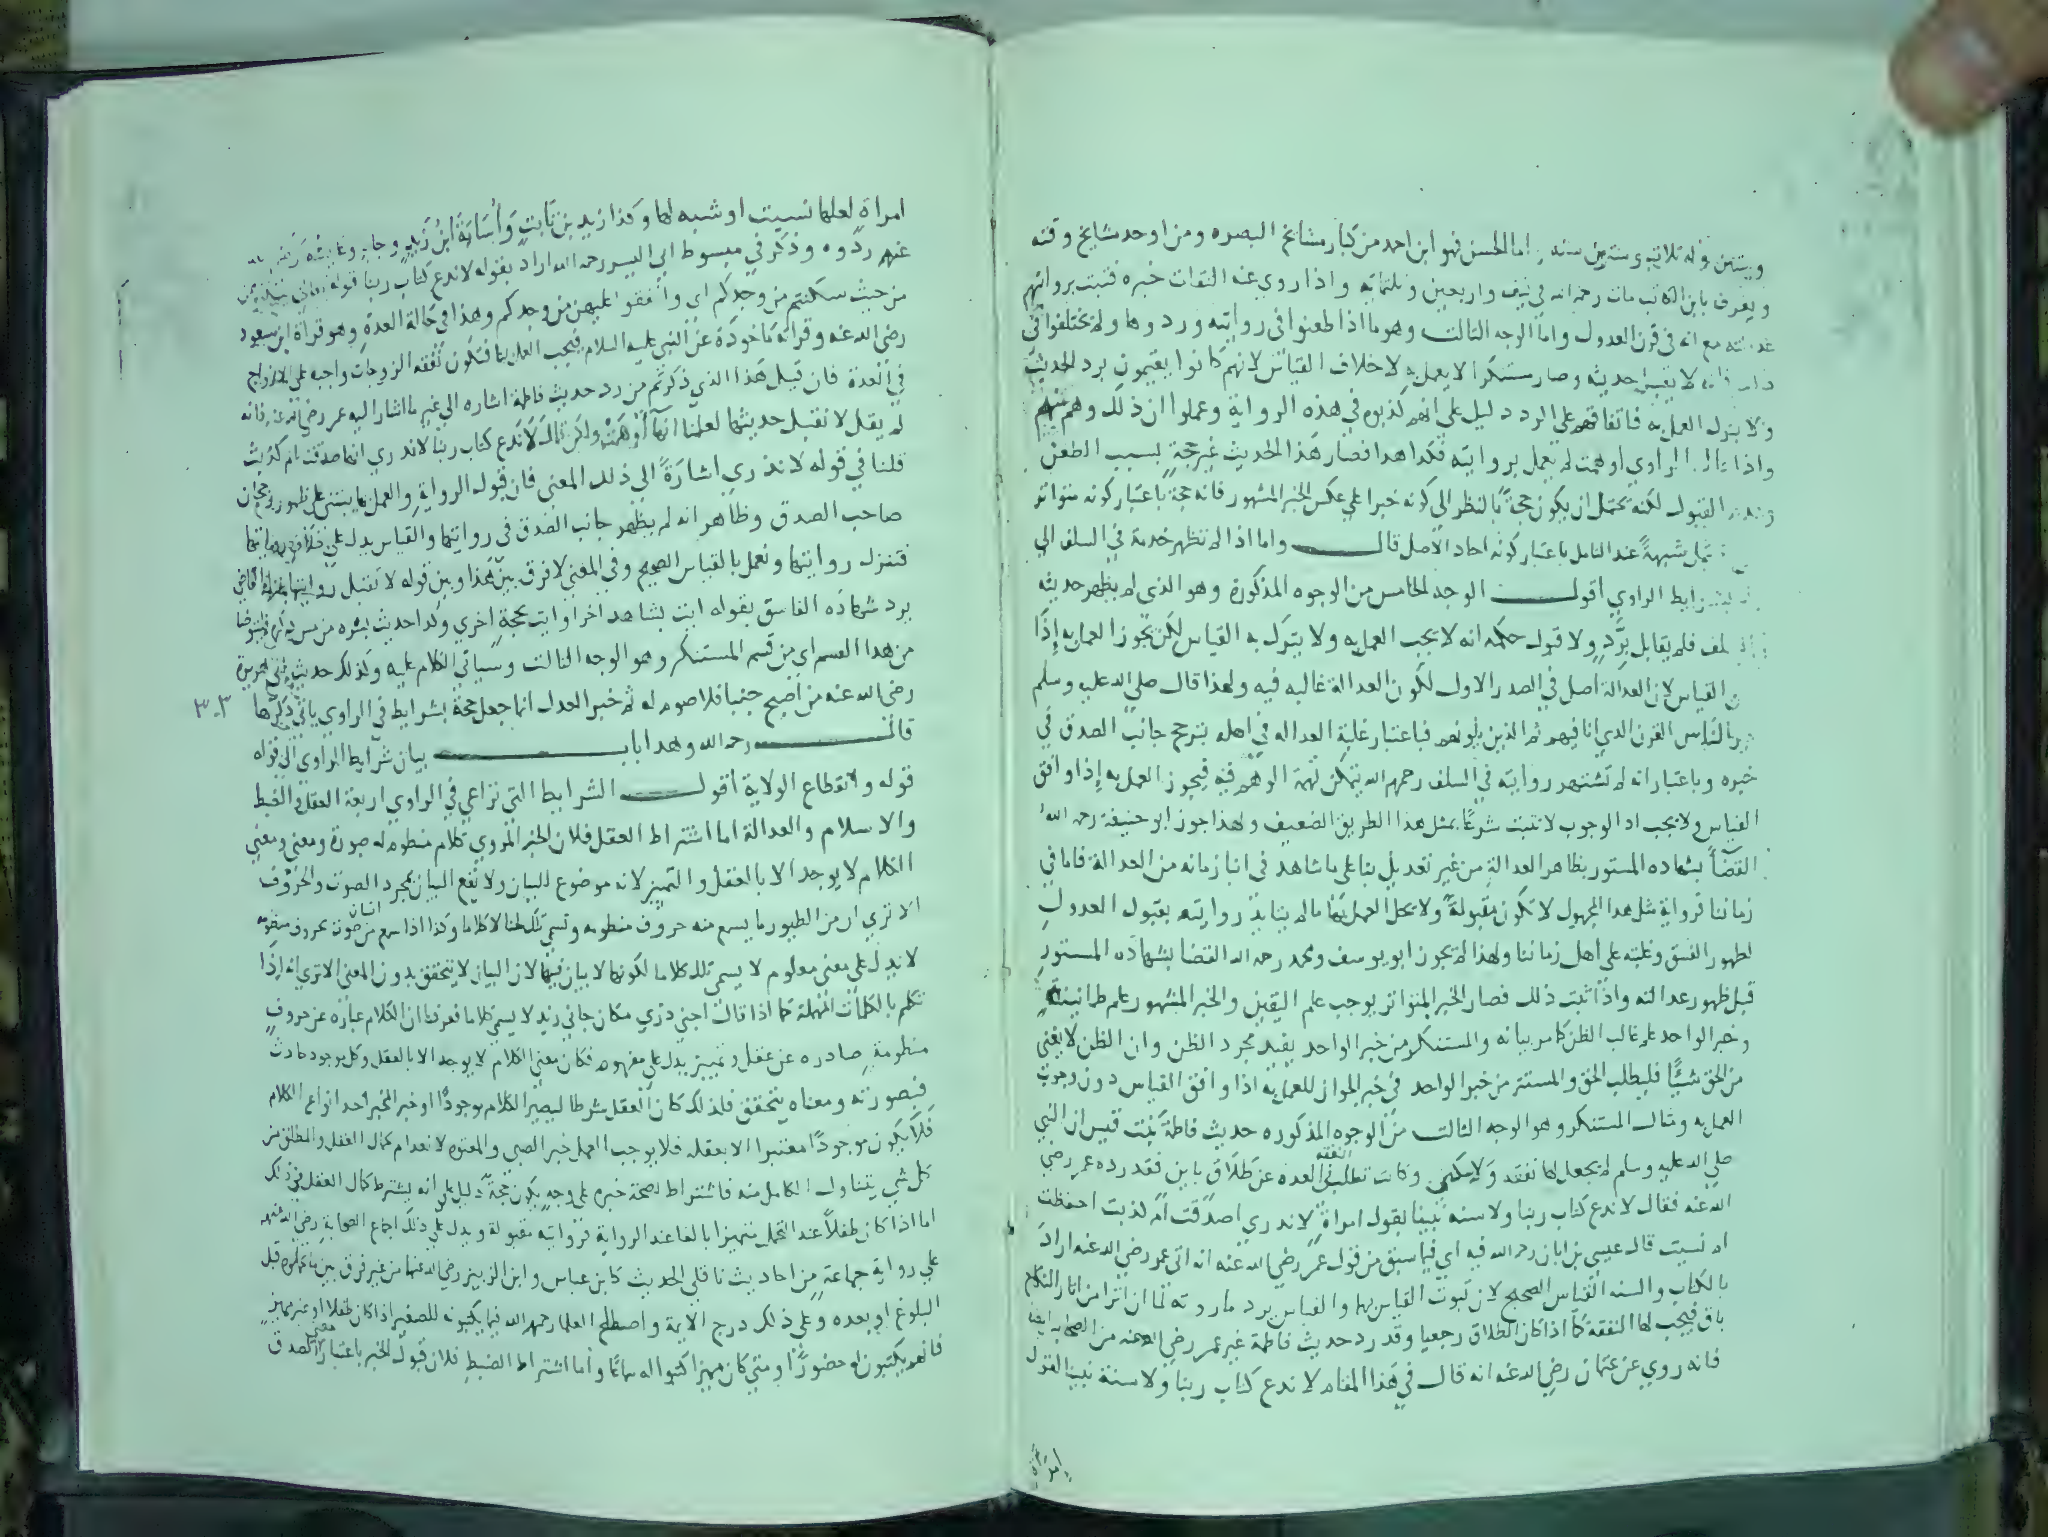 وستين وله ثلاثة وستون سنه اما الحسن فهو ابن احمد من كبار مشايخ البصره ومن اوحد مشايخ وقته
ويعرف بابن الكاتب مات رحمه الله في نيف واربعين وثلثمايه واذا روي عنه الثقات خبره فثبت بروايتهم
عدالته مع انه في قرن العدول واما الوجه الثالث وهو ما اذا طعنوا في روايته وردوها ولم يختلفوا في
ذلك فانه لا يقبل حديثه وصار مستنكرا لا يعمل به لاخلاف القياس لانهم كانوا يقيمون برد الحديث
ولا يترك العمل به فاتفاقهم على الرد دليل على انهم كذبوه في هذه الرواية وعملوا ان ذلك وهم منهم
واذا قال الراوي اوهمت لم يعمل بروايته فكذا هدا فصار هذا الحديث غير حجة بسبب الطعن
القبول لكنه يحتمل ان يكون حجة بالنظر الى كونه خبرا على عكس الخبر المشهور فانه حجة باعتبار كونه متواتر
شبهة عند التامل باعتبار كونه احاد الاصل قال واما اذا لم تظهر خدمة في السلف الي
شرايط الراوي اقول الوجه الخامس من الوجوه المذكورة وهو الذي لم يظهر حديثه
السلف فلم يقابل برد ولا قبول حكمه انه لا يجب العمل به ولا يترك به القياس لكن يجوز العمل به إذا
القياس لان العدالة اصل في الصدر الاول لكون العدالة غالبه فيه ولهذا قال صلى الله عليه وسلم
خير الناس القرن الذي انا فيهم ثم الذين يلونهم فباعتبار غلبة العداله في اهله يترجح جانب الصدق في
خبره وباعتبار انه لم تشتهر روايته في السلف رحمهم الله يتمكن تهمة الوهم فيه فيجوز العمل به إذا وافق
القياس ولا يجب اد الوجوب لا يثبت شرعا بمثل هدا الطريق الضعيف ولهذا جوز ابو حنيفة رحمه الله
القضا بشهاده المستور بظاهر العدالة من غير تعديل بنا على ما شاهد في ابنا زمانه من العدالة فاما في
زماننا فرواية مثل هدا المجهول لا تكون مقبولة ولا يحل العمل بها ما لم يتايد روايته بقبول العدول
لظهور الفسق وغلبته على اهل زماننا ولهذا لم يجوز ابو يوسف ومحمد رحمه الله القضا بشهاده المستور
قبل ظهور عدالته واذا ثبت ذلك فصار الخبر المتواتر يوجب علم اليقين والخبر المشهور علم طمانينة
وخبر الواحد علم غالب الظن كما مر بيانه والمستنكر من خبر الواحد يفيد مجرد الظن وان الظن لا يغني
من الحق شيئا فليطلب الحق والمستتر من خبر الواحد في خبر الجواز للعمل به اذا وافق القياس دون وجوب
العمل به ومثال المستنكر وهو الوجه الثالث من الوجوه المذكوره حديث فاطمة بنت قيس ان النبي
صلى الله عليه وسلم لم يجعل لها نفقه ولا سكنى وكانت تطلب النفقه في العده عن طلاق باين فقد رده عمر رضي
الله عنه فقال لا ندع كتاب ربنا ولا سنه نبينا بقول امراة لا ندري اصدقت ام كذبت احفظت
ام نسيت قال عيسى بن ابان رحمه الله فيه اي فيما سبق من قول عمر رضي الله عنه انه اتى عمر رضي الله عنه اراد
بالكتاب والسنه القياس الصحيح لان ثبوت القياس بهما والقياس يرد ما روته لما ان اثرا من اثار النكاح
باق فيجب لها النفقة كما اذا كان الطلاق رجعيا وقد رد حديث فاطمة غير عمر رضي الله عنه من الصحابه ايضا
فانه روي عن عثمان رضي الله عنه انه قال في هذا المقام لا ندع كتاب ربنا ولا سنة نبينا لقول
امراة
امراة لعلها نسيت او شبه لها وكذا زيد بن ثابت وأسامة ابن زيد وجابر وعايشة رضي الله
عنهم ردوه وذكر في مبسوط ابي اليسر رحمه الله اراد بقوله لا ندع كتاب ربنا قوله
من حيث سكنتم من وجدكم اي وانفقوا عليهن من وجدكم وهذا في حالة العدة وهو قراة ابن مسعود
رضي الله عنه وقراته ماخودة عن النبي عليه السلام فيجب العمل بها فتكون نفقه الزوجات واجبه على الازواج
في العدة فان قيل هذا الذي ذكرتم من رد حديث فاطمة اشاره الي غير ما اشار اليه عمر رضي الله عنه فانه
لم يقل لا نقبل حديثها لعلمنا انها أوهمت ولكن قال لا ندع كتاب ربنا لا ندري انها صدقت ام كذبت
قلنا في قوله لا ندري اشارة الى ذلك المعنى فان قبول الرواية والعمل بها يبتني على ظهور رجحان
صاحب الصدق وظاهر انه لم يظهر جانب الصدق في روايتها والقياس يدل على خلاف روايتها
فتترك روايتها ونعمل بالقياس الصحيح وفي المعنى لا فرق بين هذا وبين قوله لا تقبل روايتها بمنزلة القاضي
يرد شهاده الفاسق بقوله ايت بشاهد اخر او ايت بحجة اخري وكدا حديث بشره من مس ذكره فليتوضا
من هدا القسم اي من قسم المستنكر وهو الوجه الثالث وسياتي الكلام عليه وكذلك حديث ابي هريرة
رضي الله عنه من اصبح جنبا فلا صوم له ثم خبر العدل انما جعل حجة بشرايط في الراوي ياتي ذكرها
٣٠٣
قال رحمه الله وهدا باب بيان شرايط الراوي الى قوله
قوله وانقطاع الولاية اقول الشرايط التي تراعي في الراوي اربعة العقل والضبط
والاسلام والعدالة اما اشتراط العقل فلان الخبر المروي كلام منظوم له صورة ومعنى ومعنى
الكلام لا يوجد الا بالعقل والتمييز لانه موضوع للبيان ولا يقع البيان بمجرد الصوت والحروف
الا تري ان من الطيور ما يسمع منه حروف منظومه وتسمي تلك لحنا لا كلاما وكذا اذا سمع من انسان صوت بحروف منظومه
لا يدل على معنى معلوم لا يسمى تلك كلاما لكونها لا بيان فيها لان البيان لا يتحقق بدون المعنى الا تري انه إذا
تكلم بالكلمات المهملة كما اذا قال اجني دزي مكان جاني زيد لا يسمى كلاما فعرفنا ان الكلام عباره عن حروف
منظومة صادره عن عقل وتمييز يدل على مفهوم فكان معنى الكلام لا يوجد الا بالعقل وكل موجود حادث
فبصورته ومعناه يتحقق فلذلك كان العقل شرطا ليصير الكلام موجودا او خبر المخبر احد انواع الكلام
فلا يكون موجودا معتبرا الا بعقله فلا يوجب العمل خبر الصبي والمعتوه لانعدام كمال العقل والمطلق من
كل شي يتناول الكامل منه فاشتراط لصحة خبره على وجه يكون حجة دليل على انه يشترط كمال العقل في ذلك
اما اذا كان طفلا عند التحمل مميزا بالغا عند الرواية فروايته مقبولة ويدل على ذلك اجماع الصحابة رضي الله عنهم
علي رواية جماعة من احاديث ناقلي الحديث كابن عباس وابن الزبير رضي الله عنهما من غير فرق بين ما تحملوه قبل
البلوغ او بعده وعلى ذلك درج الايمة واصطلح العلما رحمهم الله فيما يكتبونه للصغير اذا كان طفلا او غير مميز
فانهم يكتبون له حضورا ومتي كان مميزا كتبوا له سماعا وأما اشتراط الضبط فلان قبول الخبر باعتبار معنى الصدق